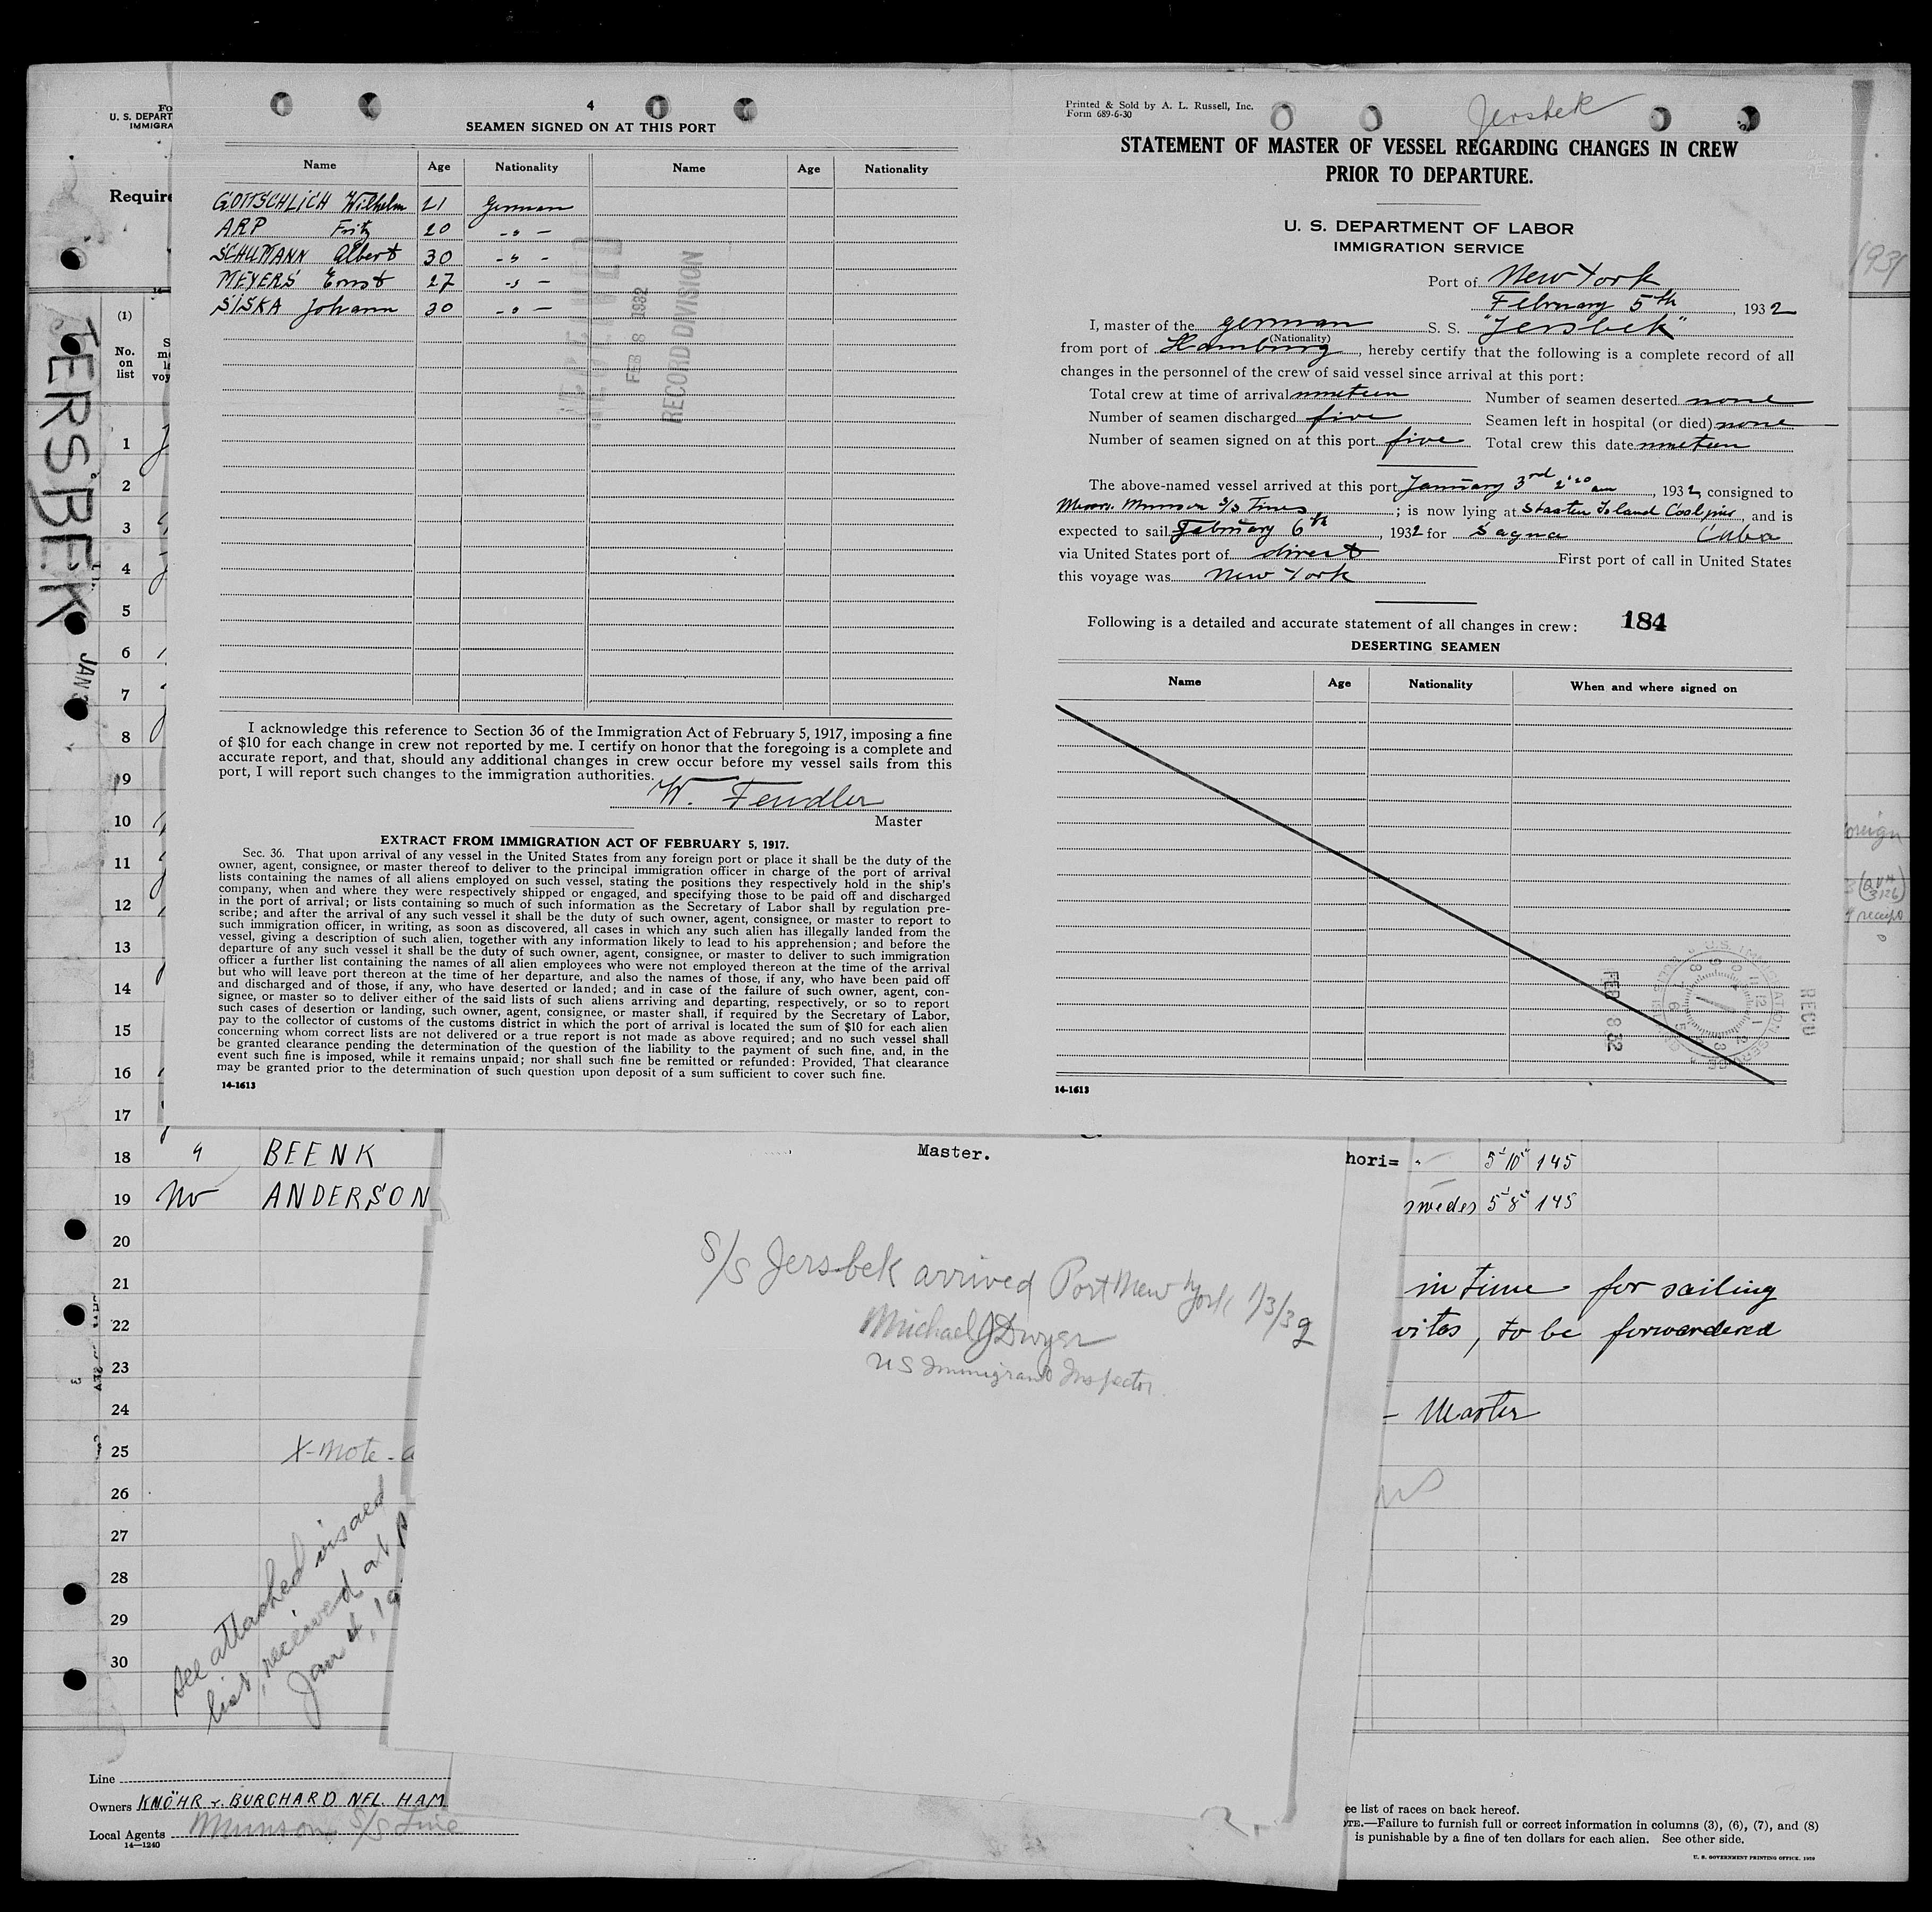 4
SEAMEN SIGNED ON AT THIS PORT
Name Age Nationality Name Age Nationality
GOTTSCHLICH Wilhelm 21 German
ARP Fritz 20 - " -
SCHUMANN Albert 30 - " -
MEYERS Ernst 27 - " -
SISKA Johann 30 - " -
RECEIVED
FEB 8 1932
RECORD DIVISION
I acknowledge this reference to Section 36 of the Immigration Act of February 5, 1917, imposing a fine
of $10 for each change in crew not reported by me. I certify on honor that the foregoing is a complete and
accurate report, and that, should any additional changes in crew occur before my vessel sails from this
port, I will report such changes to the immigration authorities.
W. Fendler
Master
EXTRACT FROM IMMIGRATION ACT OF FEBRUARY 5, 1917.
Sec. 36. That upon arrival of any vessel in the United States from any foreign port or place it shall be the duty of the
owner, agent, consignee, or master thereof to deliver to the principal immigration officer in charge of the port of arrival
lists containing the names of all aliens employed on such vessel, stating the positions they respectively hold in the ship's
company, when and where they were respectively shipped or engaged, and specifying those to be paid off and discharged
in the port of arrival; or lists containing so much of such information as the Secretary of Labor shall by regulation pre-
scribe; and after the arrival of any such vessel it shall be the duty of such owner, agent, consignee, or master to report to
such immigration officer, in writing, as soon as discovered, all cases in which any such alien has illegally landed from the
vessel, giving a description of such alien, together with any information likely to lead to his apprehension; and before the
departure of any such vessel it shall be the duty of such owner, agent, consignee, or master to deliver to such immigration
officer a further list containing the names of all alien employees who were not employed thereon at the time of the arrival
but who will leave port thereon at the time of her departure, and also the names of those, if any, who have been paid off
and discharged and of those, if any, who have deserted or landed; and in case of the failure of such owner, agent, con-
signee, or master so to deliver either of the said lists of such aliens arriving and departing, respectively, or so to report
such cases of desertion or landing, such owner, agent, consignee, or master shall, if required by the Secretary of Labor,
pay to the collector of customs of the customs district in which the port of arrival is located the sum of $10 for each alien
concerning whom correct lists are not delivered or a true report is not made as above required; and no such vessel shall
be granted clearance pending the determination of the question of the liability to the payment of such fine, and, in the
event such fine is imposed, while it remains unpaid; nor shall such fine be remitted or refunded: Provided, That clearance
may be granted prior to the determination of such question upon deposit of a sum sufficient to cover such fine.
14-1613
Printed & Sold by A. L. Russell, Inc.
Form 689-6-30
Jersbek
STATEMENT OF MASTER OF VESSEL REGARDING CHANGES IN CREW
PRIOR TO DEPARTURE.
U. S. DEPARTMENT OF LABOR
IMMIGRATION SERVICE
Port of New York
February 5th, 1932
I, master of the german S. S. "Jersbek"
(Nationality)
from port of Hamburg, hereby certify that the following is a complete record of all
changes in the personnel of the crew of said vessel since arrival at this port:
Total crew at time of arrival nineteen Number of seamen deserted none
Number of seamen discharged five Seamen left in hospital (or died) none
Number of seamen signed on at this port five Total crew this date nineteen
The above-named vessel arrived at this port January 3rd 2:20 am, 1932, consigned to
Messrs. Munson S/S Lines; is now lying at Staaten Island Coalpier, and is
expected to sail February 6th, 1932 for Sagua Cuba
via United States port of direct First port of call in United States
this voyage was New York
Following is a detailed and accurate statement of all changes in crew: 184
DESERTING SEAMEN
Name Age Nationality When and where signed on
FEB 8 32
14-1613
U. S. DEPART
IMMIGRA
Require
(1)
No.
on
list
JERSBEK
JAN 3
1
2
3
4
5
6
7
8
9
10
11
12
13
14
15
16
17
18 " BEENK
19 No ANDERSON
20
21
22
23
24
25
26
27
28
29
30
X-Note-
See attached visaed
list, received at
Jan 4, 19
Line
Owners KNÖHR & BURCHARD NFL. HAM
Local Agents Munson S/S Line
14-1240
Master.
S/S Jersbek arrived Port New York 1/3/32
Michael J Dwyer
US Immigrant Inspector
hori=
5'10" 145
swedes 5'8" 145
in time for sailing
to be forwardered
- Master
ee list of races on back hereof.
OTE.—Failure to furnish full or correct information in columns (3), (6), (7), and (8)
is punishable by a fine of ten dollars for each alien. See other side.
U. S. GOVERNMENT PRINTING OFFICE.